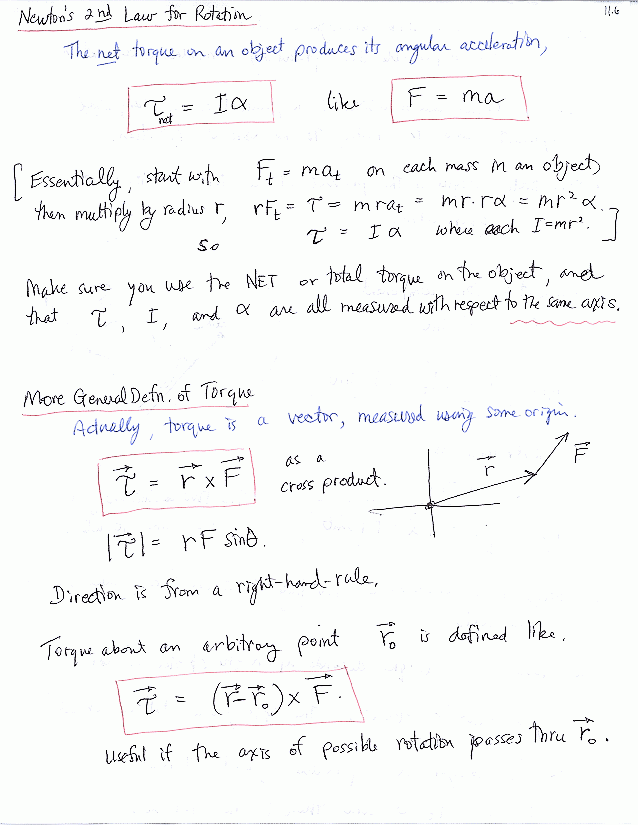 Newton's 2nd Law for Rotation
11.6
The net torque on an object produces its angular acceleration,
τnet = Iα like F = ma
[Essentially, start with Ft = mat on each mass in an object,
then multiply by radius r, rFt = τ = mrat = mr·rα = mr²α.
so τ = Iα where each I=mr².]
Make sure you use the NET or total torque on the object, and
that τ, I, and α are all measured with respect to the same axis.
More General Defn. of Torque
Actually, torque is a vector, measured using some origin.
τ⃗ = r⃗ × F⃗ as a
cross product.
r⃗ F⃗
|τ⃗| = rF sinθ.
Direction is from a right-hand-rule.
Torque about an arbitray point r⃗₀ is defined like.
τ⃗ = (r⃗-r⃗₀) × F⃗.
Useful if the axis of possible rotation passes thru r⃗₀.